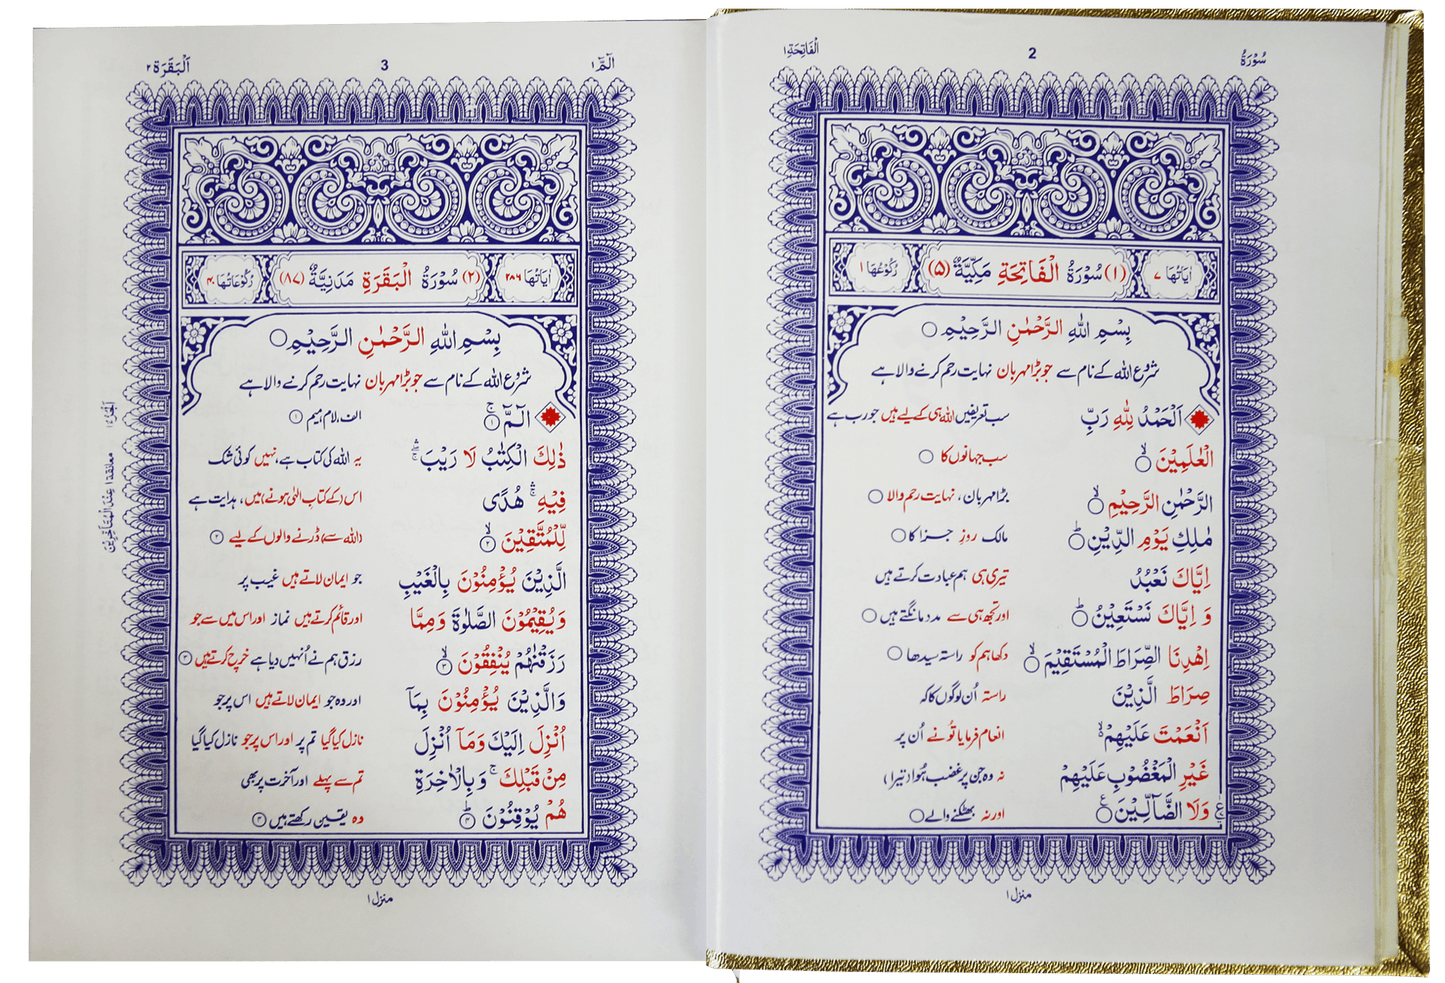 سُوْرَةُ 2 اَلْفَاتِحَةِ ١
اٰيَاتُهَا ٧ (١) سُوْرَةُ الْفَاتِحَةِ مَكِّيَّةٌ (۵) رُكُوْعُهَا ١
بِسْمِ اللّٰهِ الرَّحْمٰنِ الرَّحِيْمِ ○
شروع اللہ کے نام سے جو بڑا مہربان نہایت رحم کرنے والا ہے
اَلْحَمْدُ لِلّٰهِ رَبِّ سب تعریفیں اللہ ہی کے لیے ہیں جو رب ہے
الْعٰلَمِيْنَ ○ سب جہانوں کا ○
الرَّحْمٰنِ الرَّحِيْمِ ○ بڑا مہربان، نہایت رحم والا ○
مٰلِكِ يَوْمِ الدِّيْنِ ○ مالک روزِ جزا کا ○
اِيَّاكَ نَعْبُدُ تیری ہی ہم عبادت کرتے ہیں
وَ اِيَّاكَ نَسْتَعِيْنُ ○ اور تجھ ہی سے مدد مانگتے ہیں ○
اِهْدِنَا الصِّرَاطَ الْمُسْتَقِيْمَ ○ دکھا ہم کو راستہ سیدھا ○
صِرَاطَ الَّذِيْنَ راستہ اُن لوگوں کا کہ
اَنْعَمْتَ عَلَيْهِمْ انعام فرمایا تُو نے اُن پر
غَيْرِ الْمَغْضُوْبِ عَلَيْهِمْ نہ وہ جن پر غضب ہُوا (تیرا)
وَلَا الضَّآلِّيْنَ ○ اور نہ بھٹکنے والے ○
منزل ١
الٓمّٓ ١ 3 اَلْبَقَرَة ٢
اٰيَاتُهَا ٢٨٦ (٢) سُوْرَةُ الْبَقَرَةِ مَدَنِيَّةٌ (٨٧) رُكُوْعَاتُهَا ٤٠
بِسْمِ اللّٰهِ الرَّحْمٰنِ الرَّحِيْمِ ○
شروع اللہ کے نام سے جو بڑا مہربان نہایت رحم کرنے والا ہے
الٓمّٓ ١ الف، لام، میم ١
ذٰلِكَ الْكِتٰبُ لَا رَيْبَ یہ اللہ کی کتاب ہے، نہیں کوئی شک
فِيْهِ هُدًى اس (کے کتابِ الٰہی ہونے) میں، ہدایت ہے
لِّلْمُتَّقِيْنَ ٢ (اللہ سے) ڈرنے والوں کے لیے ٢
الَّذِيْنَ يُؤْمِنُوْنَ بِالْغَيْبِ جو ایمان لاتے ہیں غیب پر
وَيُقِيْمُوْنَ الصَّلٰوةَ وَمِمَّا اور قائم کرتے ہیں نماز اور اس میں سے جو
رَزَقْنٰهُمْ يُنْفِقُوْنَ ٣ رزق ہم نے اُنہیں دیا ہے خرچ کرتے ہیں ٣
وَالَّذِيْنَ يُؤْمِنُوْنَ بِمَآ اور وہ جو ایمان لاتے ہیں اس پر جو
اُنْزِلَ اِلَيْكَ وَمَآ اُنْزِلَ نازل کیا گیا تم پر اور اس پر جو نازل کیا گیا
مِنْ قَبْلِكَ ۚ وَبِالْاٰخِرَةِ تم سے پہلے اور آخرت پر بھی
هُمْ يُوْقِنُوْنَ ٤ وہ یقین رکھتے ہیں ٤
منزل ١